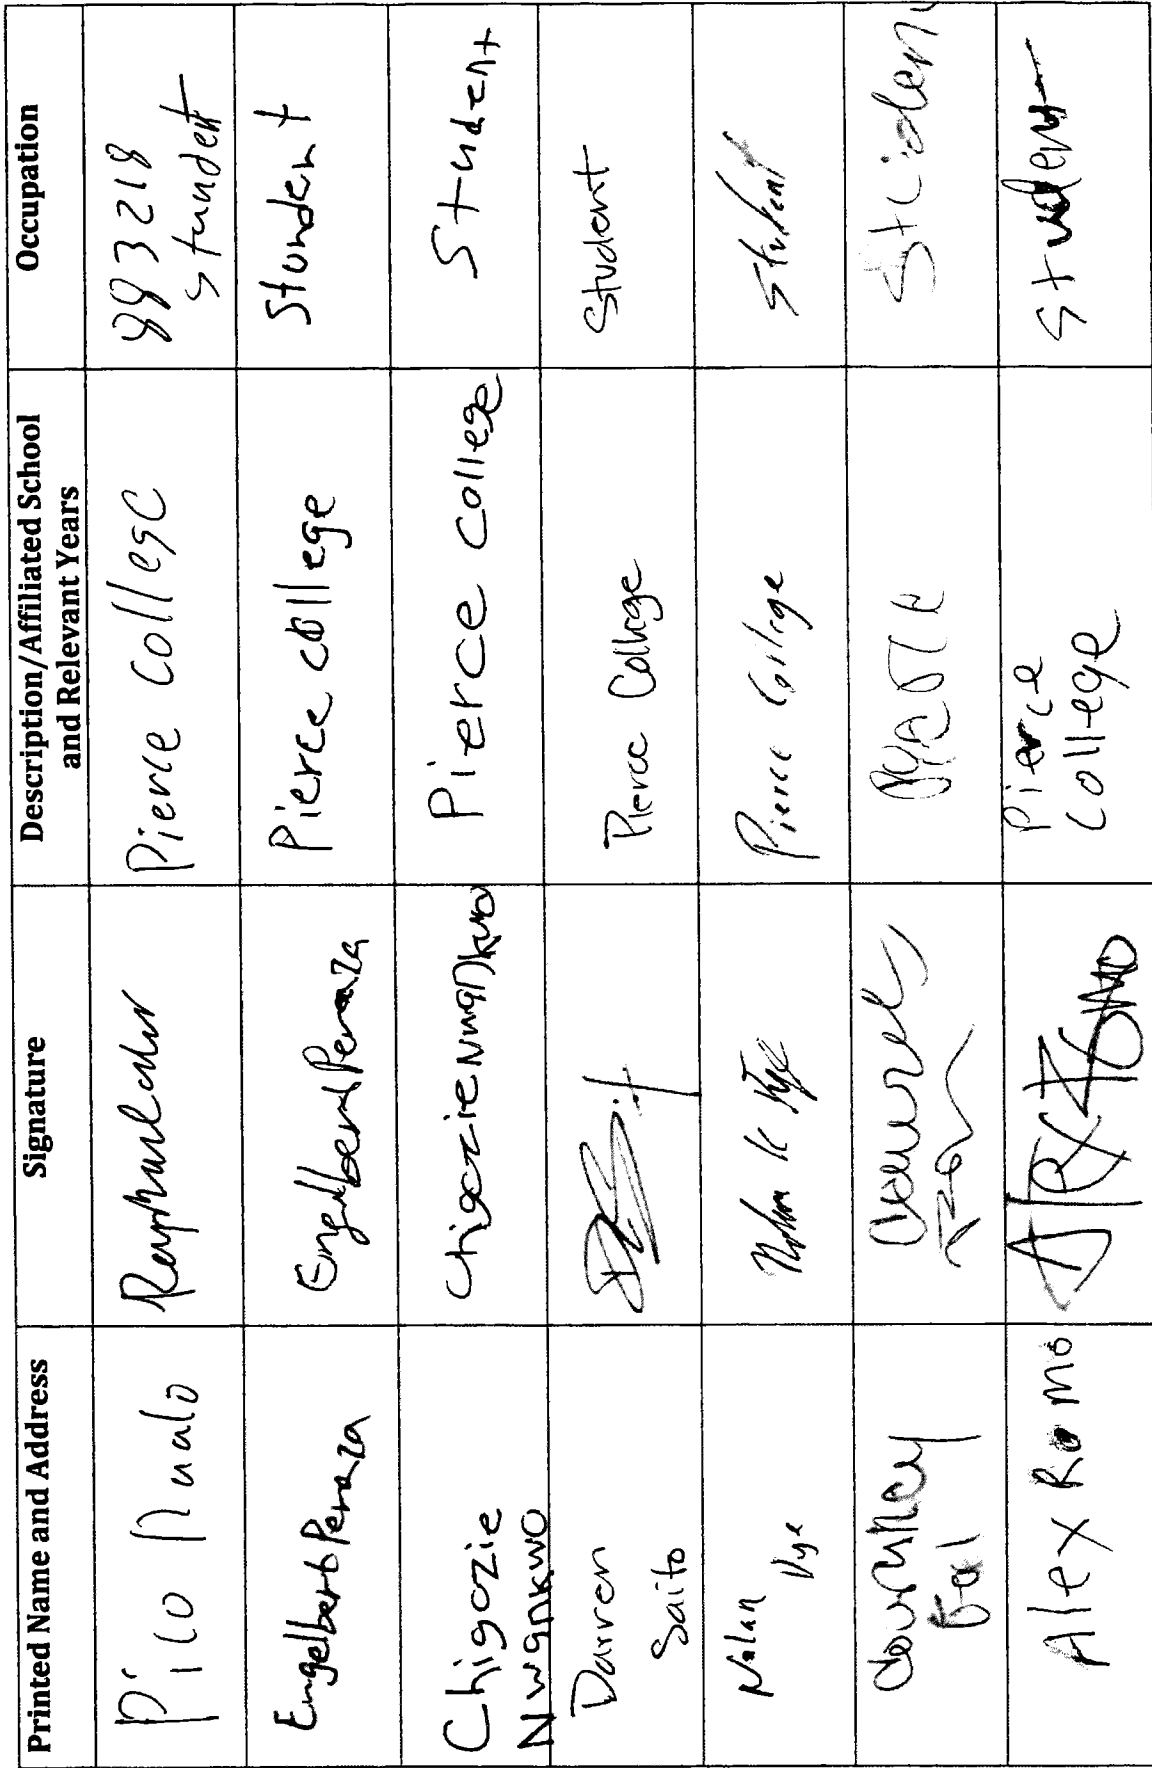 Printed Name and Address
Signature
Description/Affiliated School
and Relevant Years
Occupation
Pico
Pierce College
883218
student
Engelbert Peraza
Engelbert Peraza
Pierce college
Stundent
Chigozie
Nwankwo
Chigozie Nwankwo
Pierce College
Student
Darren
Saito
Pierce College
Student
Nolan
Nye
Nolan K Nye
Pierce College
Student
Courtney
Student
Alex Romo
Alex Romo
Pierce
College
Student